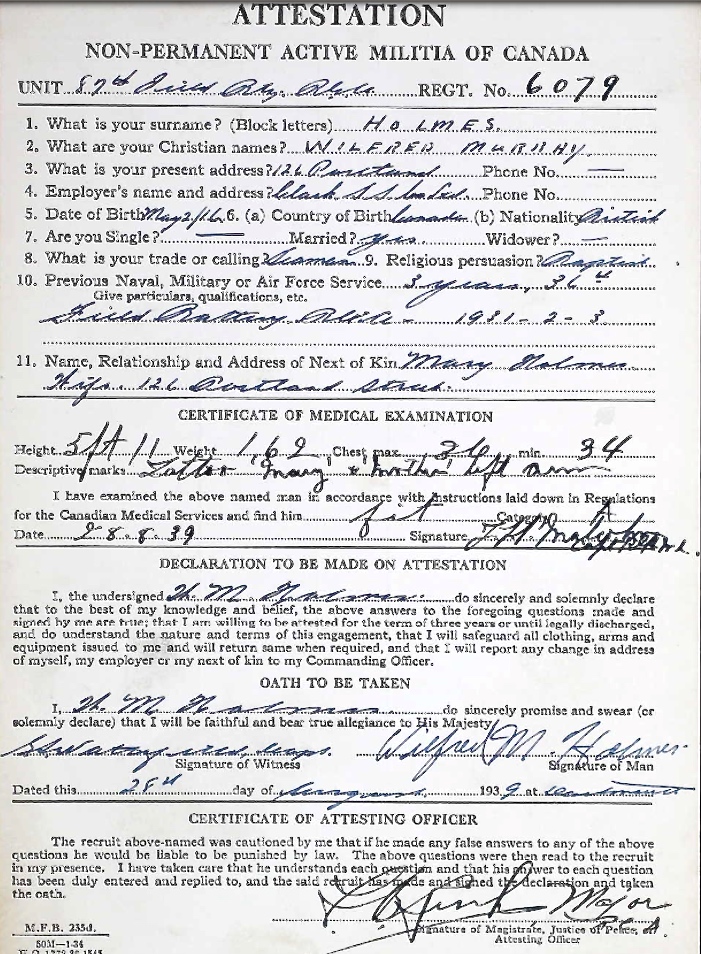 ATTESTATION
NON-PERMANENT ACTIVE MILITIA OF CANADA
UNIT 87th Field Bty. REGT. No. 6079
1. What is your surname? (Block letters) HOLMES.
2. What are your Christian names? WILFRED MURRAY
3. What is your present address? 126 Portland Phone No. —
4. Employer's name and address? Clark S.S. Phone No.
5. Date of Birth May 2/16. 6. (a) Country of Birth Canada (b) Nationality British
7. Are you Single? — Married? yes. Widower? —
8. What is your trade or calling? Seaman 9. Religious persuasion? Baptist.
10. Previous Naval, Military or Air Force Service 3 years, 36th
Give particulars, qualifications, etc.
Field Battery RCA - 1931-2-3
11. Name, Relationship and Address of Next of Kin Mary Holmes
Wife. 126 Portland Street.
CERTIFICATE OF MEDICAL EXAMINATION
Height 5ft 11 Weight 162 Chest max. 36 min. 34
Descriptive marks Tattoo "Mary" & "Mother" left arm
I have examined the above named man in accordance with instructions laid down in Regulations
for the Canadian Medical Services and find him fit Category A
Date 28.8.39 Signature
DECLARATION TO BE MADE ON ATTESTATION
I, the undersigned W. M. Holmes do sincerely and solemnly declare
that to the best of my knowledge and belief, the above answers to the foregoing questions made and
signed by me are true; that I am willing to be attested for the term of three years or until legally discharged,
and do understand the nature and terms of this engagement, that I will safeguard all clothing, arms and
equipment issued to me and will return same when required, and that I will report any change in address
of myself, my employer or my next of kin to my Commanding Officer.
OATH TO BE TAKEN
I, W. M. Holmes do sincerely promise and swear (or
solemnly declare) that I will be faithful and bear true allegiance to His Majesty
Wilfred M. Holmes
Signature of Witness Signature of Man
Dated this 28th day of August 1939 at Dartmouth
CERTIFICATE OF ATTESTING OFFICER
The recruit above-named was cautioned by me that if he made any false answers to any of the above
questions he would be liable to be punished by law. The above questions were then read to the recruit
in my presence. I have taken care that he understands each question and that his answer to each question
has been duly entered and replied to, and the said recruit has made and signed the declaration and taken
the oath.
Major
R.C.A.
Signature of Magistrate, Justice of Peace, or
Attesting Officer
M.F.B. 235d.
50M—1-36